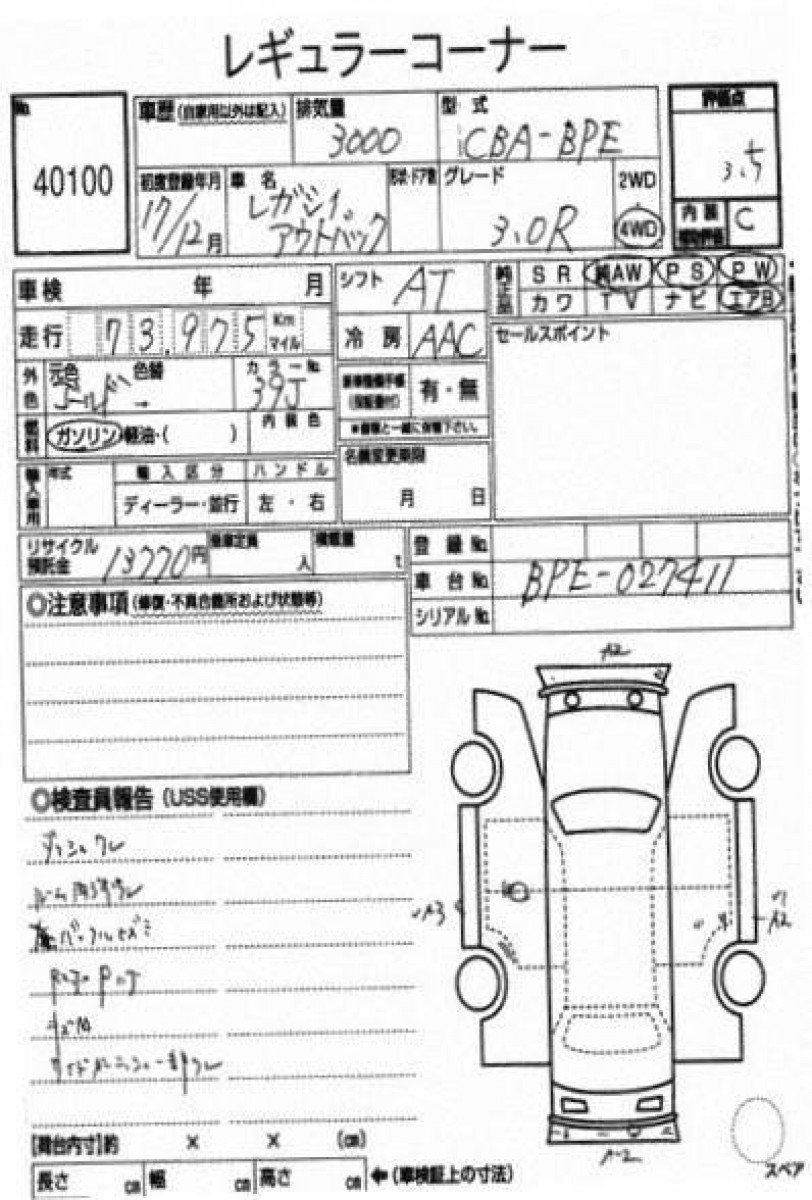 レギュラーコーナー
No. 40100
車歴 (自家用以外は記入) 排気量 3000 型式 CBA-BPE 評価点 3.5
初度登録年月 17/12月 車名 レガシィ アウトバック 形状・ドア数 グレード 3.0R 2WD 4WD 内装補助評価 C
車検 年 月 シフト AT 純正品 SR 純AW PS PW
カワ TV ナビ エアB
走行 73,975 Km マイル 冷房 AAC セールスポイント
外色 元色 ゴールド 色替 → カラーNo. 39J 新車整備手帳(保証書付) 有・無
燃料 ガソリン・軽油・( ) 内装色 ※書類と一緒に保管下さい。
輸入車用 年式 輸入区分 ハンドル 名義変更期限
ディーラー・並行 左・右 月 日
リサイクル預託金 13770円 乗車定員 人 積載量 t 登録No.
車台No. BPE-027411
◎注意事項 (修復・不具合箇所および状態等) シリアルNo.
A2
◎検査員報告 (USS使用欄)
A3
A2
キズ凹
[荷台内寸]約 × × (cm)
A-2
長さ cm 幅 cm 高さ cm ←(車検証上の寸法)
スペア